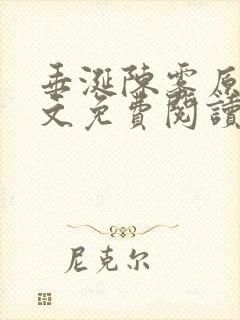 垂涎陳雾原
文免費閱讀
尼克尔